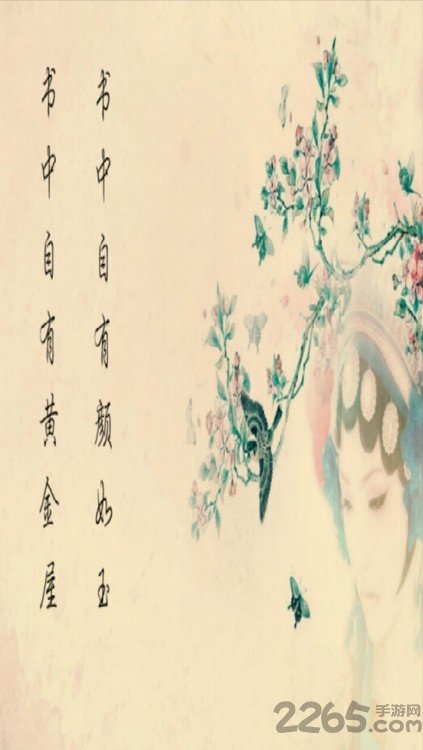 书中自有颜如玉
书中自有黄金屋
2265.com
手游网